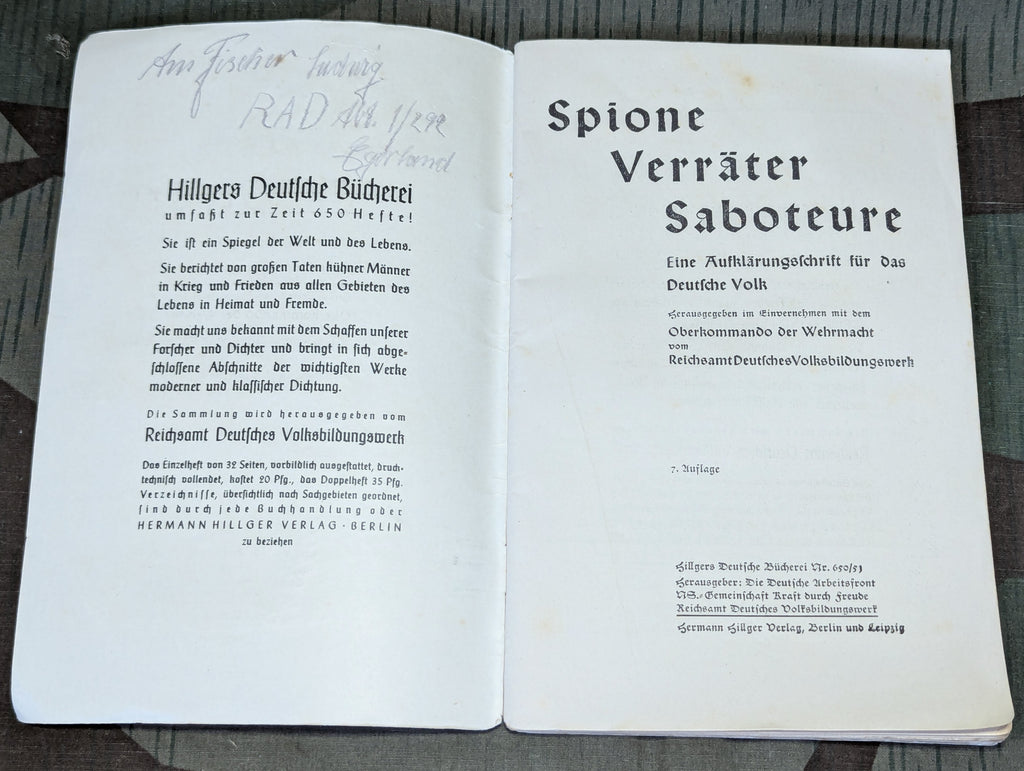 Am Fischer Ludwig
RAD Abt. 1/292
Egerland
Hillgers Deutsche Bücherei
umfaßt zur Zeit 650 Hefte!
Sie ist ein Spiegel der Welt und des Lebens.
Sie berichtet von großen Taten kühner Männer
in Krieg und Frieden aus allen Gebieten des
Lebens in Heimat und Fremde.
Sie macht uns bekannt mit dem Schaffen unserer
Forscher und Dichter und bringt in sich abge-
schlossene Abschnitte der wichtigsten Werke
moderner und klassischer Dichtung.
Die Sammlung wird herausgegeben vom
Reichsamt Deutsches Volksbildungswerk
Das Einzelheft von 32 Seiten, vorbildlich ausgestattet, druck-
technisch vollendet, kostet 20 Pfg., das Doppelheft 35 Pfg.
Verzeichnisse, übersichtlich nach Sachgebieten geordnet,
sind durch jede Buchhandlung oder
HERMANN HILLGER VERLAG · BERLIN
zu beziehen
Spione
Verräter
Saboteure
Eine Aufklärungsschrift für das
Deutsche Volk
Herausgegeben im Einvernehmen mit dem
Oberkommando der Wehrmacht
vom
Reichsamt Deutsches Volksbildungswerk
7. Auflage
Hillgers Deutsche Bücherei Nr. 650/51
Herausgeber: Die Deutsche Arbeitsfront
NS.-Gemeinschaft Kraft durch Freude
Reichsamt Deutsches Volksbildungswerk
Hermann Hillger Verlag, Berlin und Leipzig